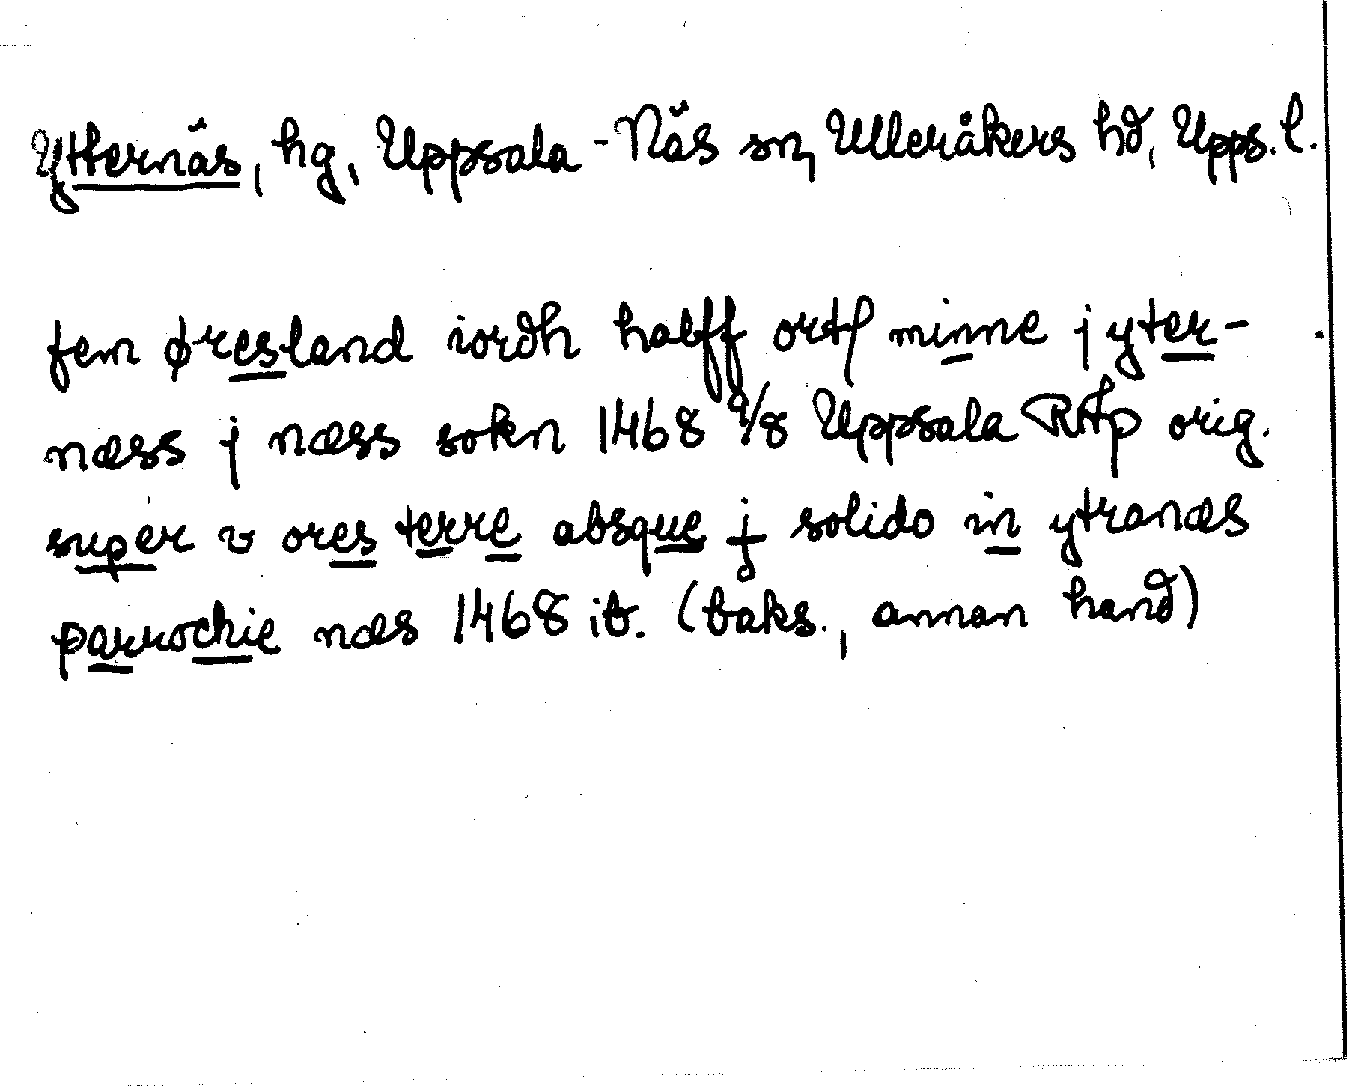 Ytternäs, hg, Uppsala-Näs sn, Ulleråkers hd, Upps. l.
fem øresland iordh halff ort minne j yter-
næss j næss sokn 1468 9/8 Uppsala RAp orig.
super v ores terre absque j solido in ytranæs
parrochie næs 1468 ib. (baks., annan hand)